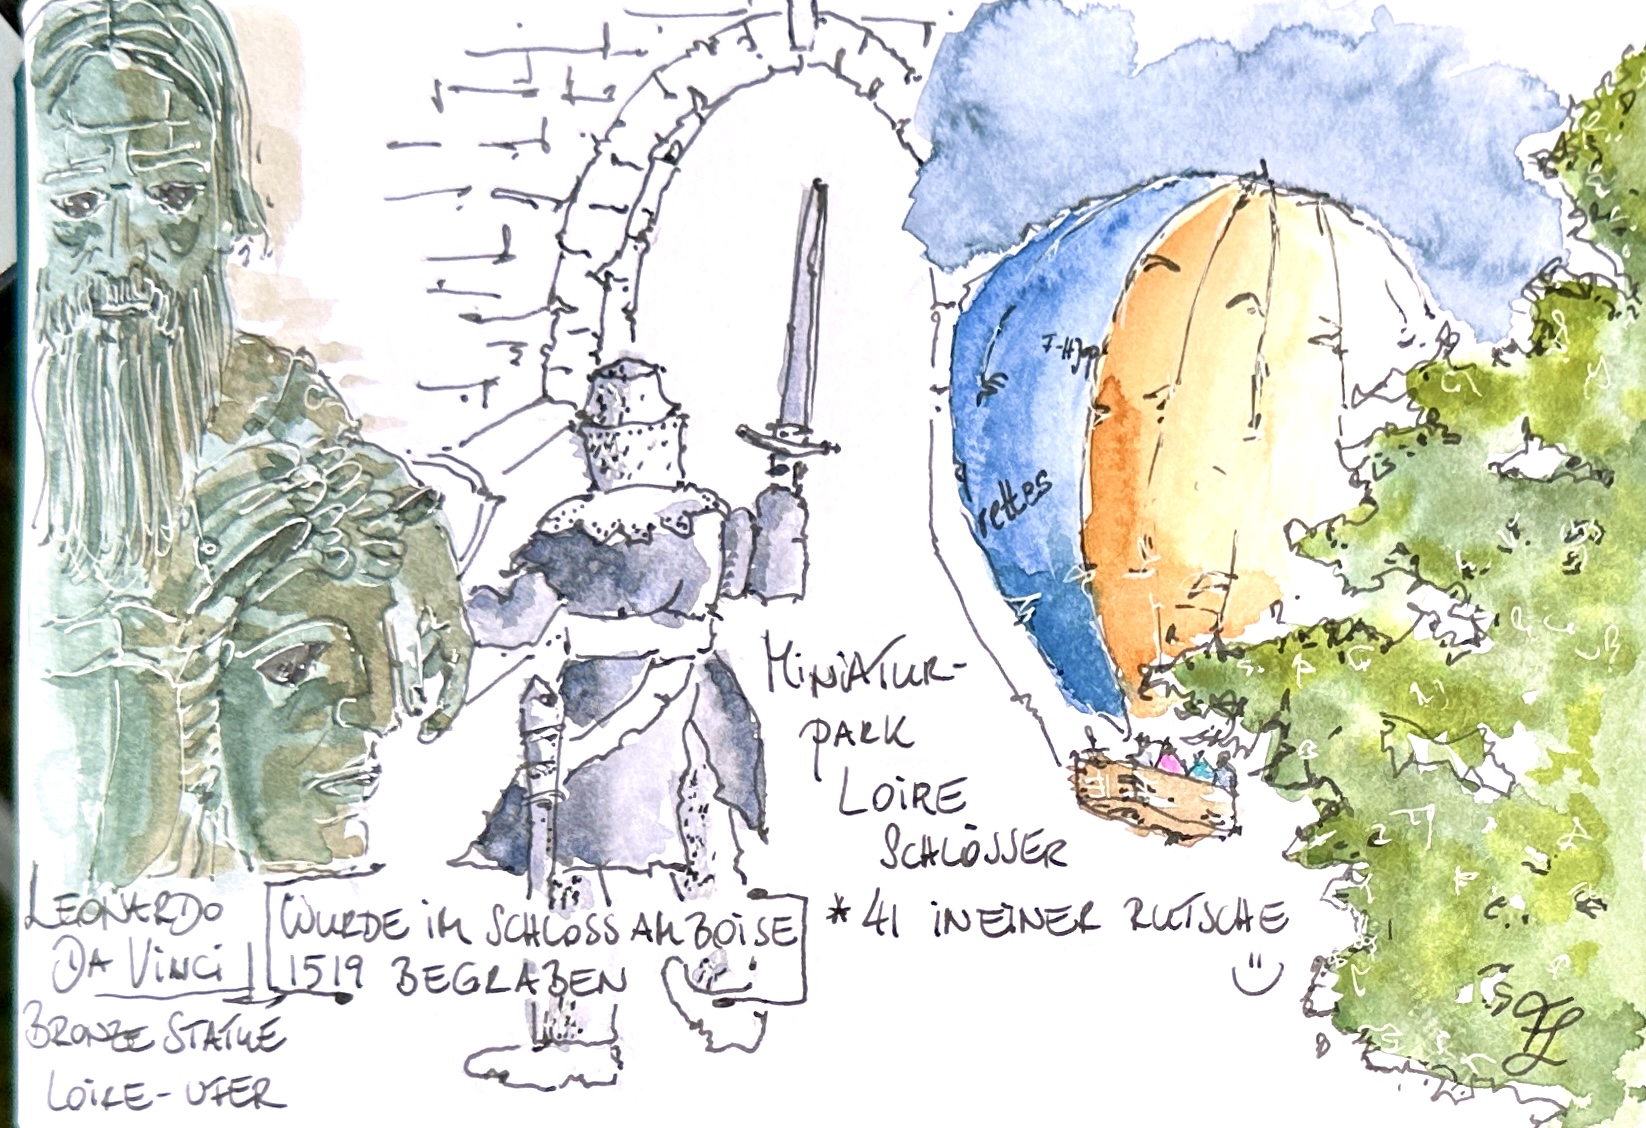 LEONARDO
DA VINCI
BRONZE STATUE
LOIRE-UFER
WURDE IM SCHLOSS AMBOISE
1519 BEGRABEN
MINIATUR-
PARK
LOIRE
SCHLÖSSER
* 41 IN EINER RUTSCHE
rettes